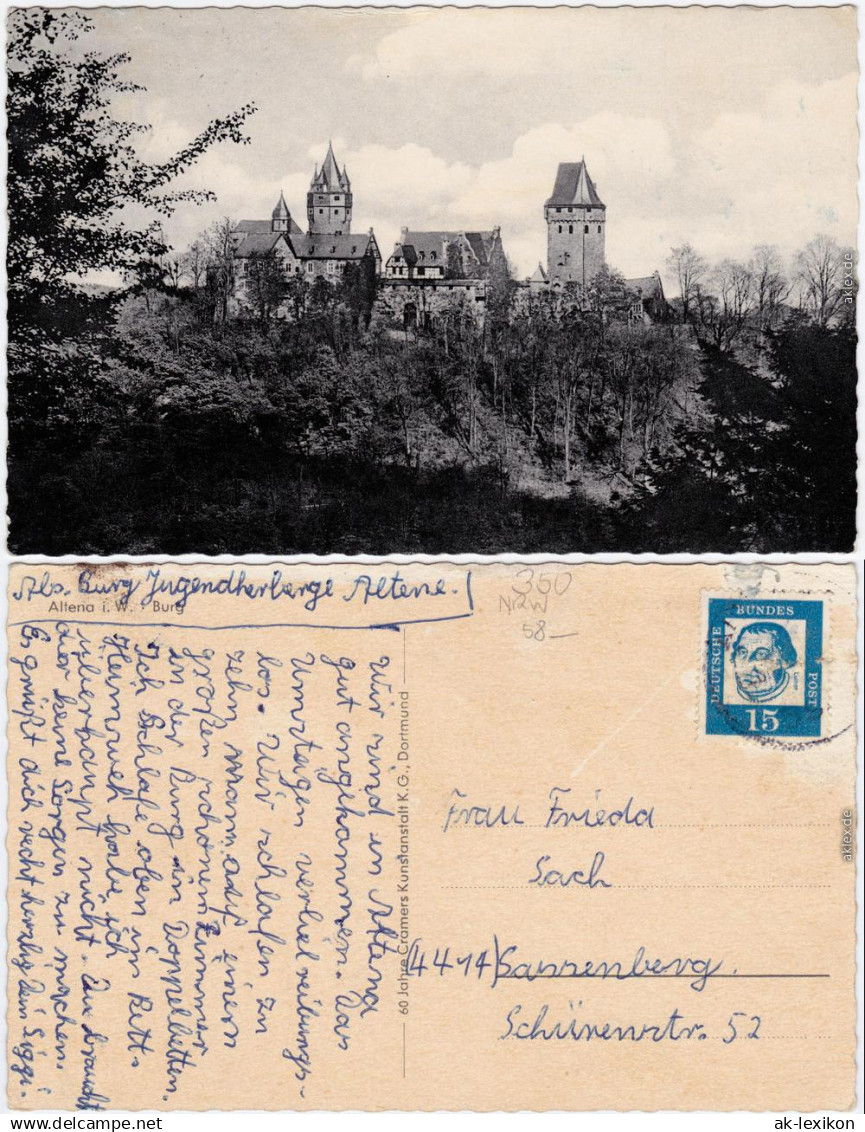 aklex.de
Abs. Burg Jugendherberge Altena.
Altena i. W. : Burg
350
NRW
58-
DEUTSCHE
BUNDES
POST
15
Wir sind in Altena
gut angekommen. Das
Umsteigen verlief reibungs-
los. Wir schlafen zu
zehn Mann auf einem
großen schönen Zimmer
in der Burg in Doppelbetten.
Ich schlafe oben im Bett.
Heimweh habe ich
überhaupt nicht. Du brauchst
dir keine Sorgen zu machen.
Es grüßt dich recht herzlig Dein Siggi.
60 Jahre Cramers Kunstanstalt K.G., Dortmund
Frau Frieda
Sach
(4414) Sassenberg.
Schürenstr. 52
aklex.de
www.delcampe.net
ak-lexikon